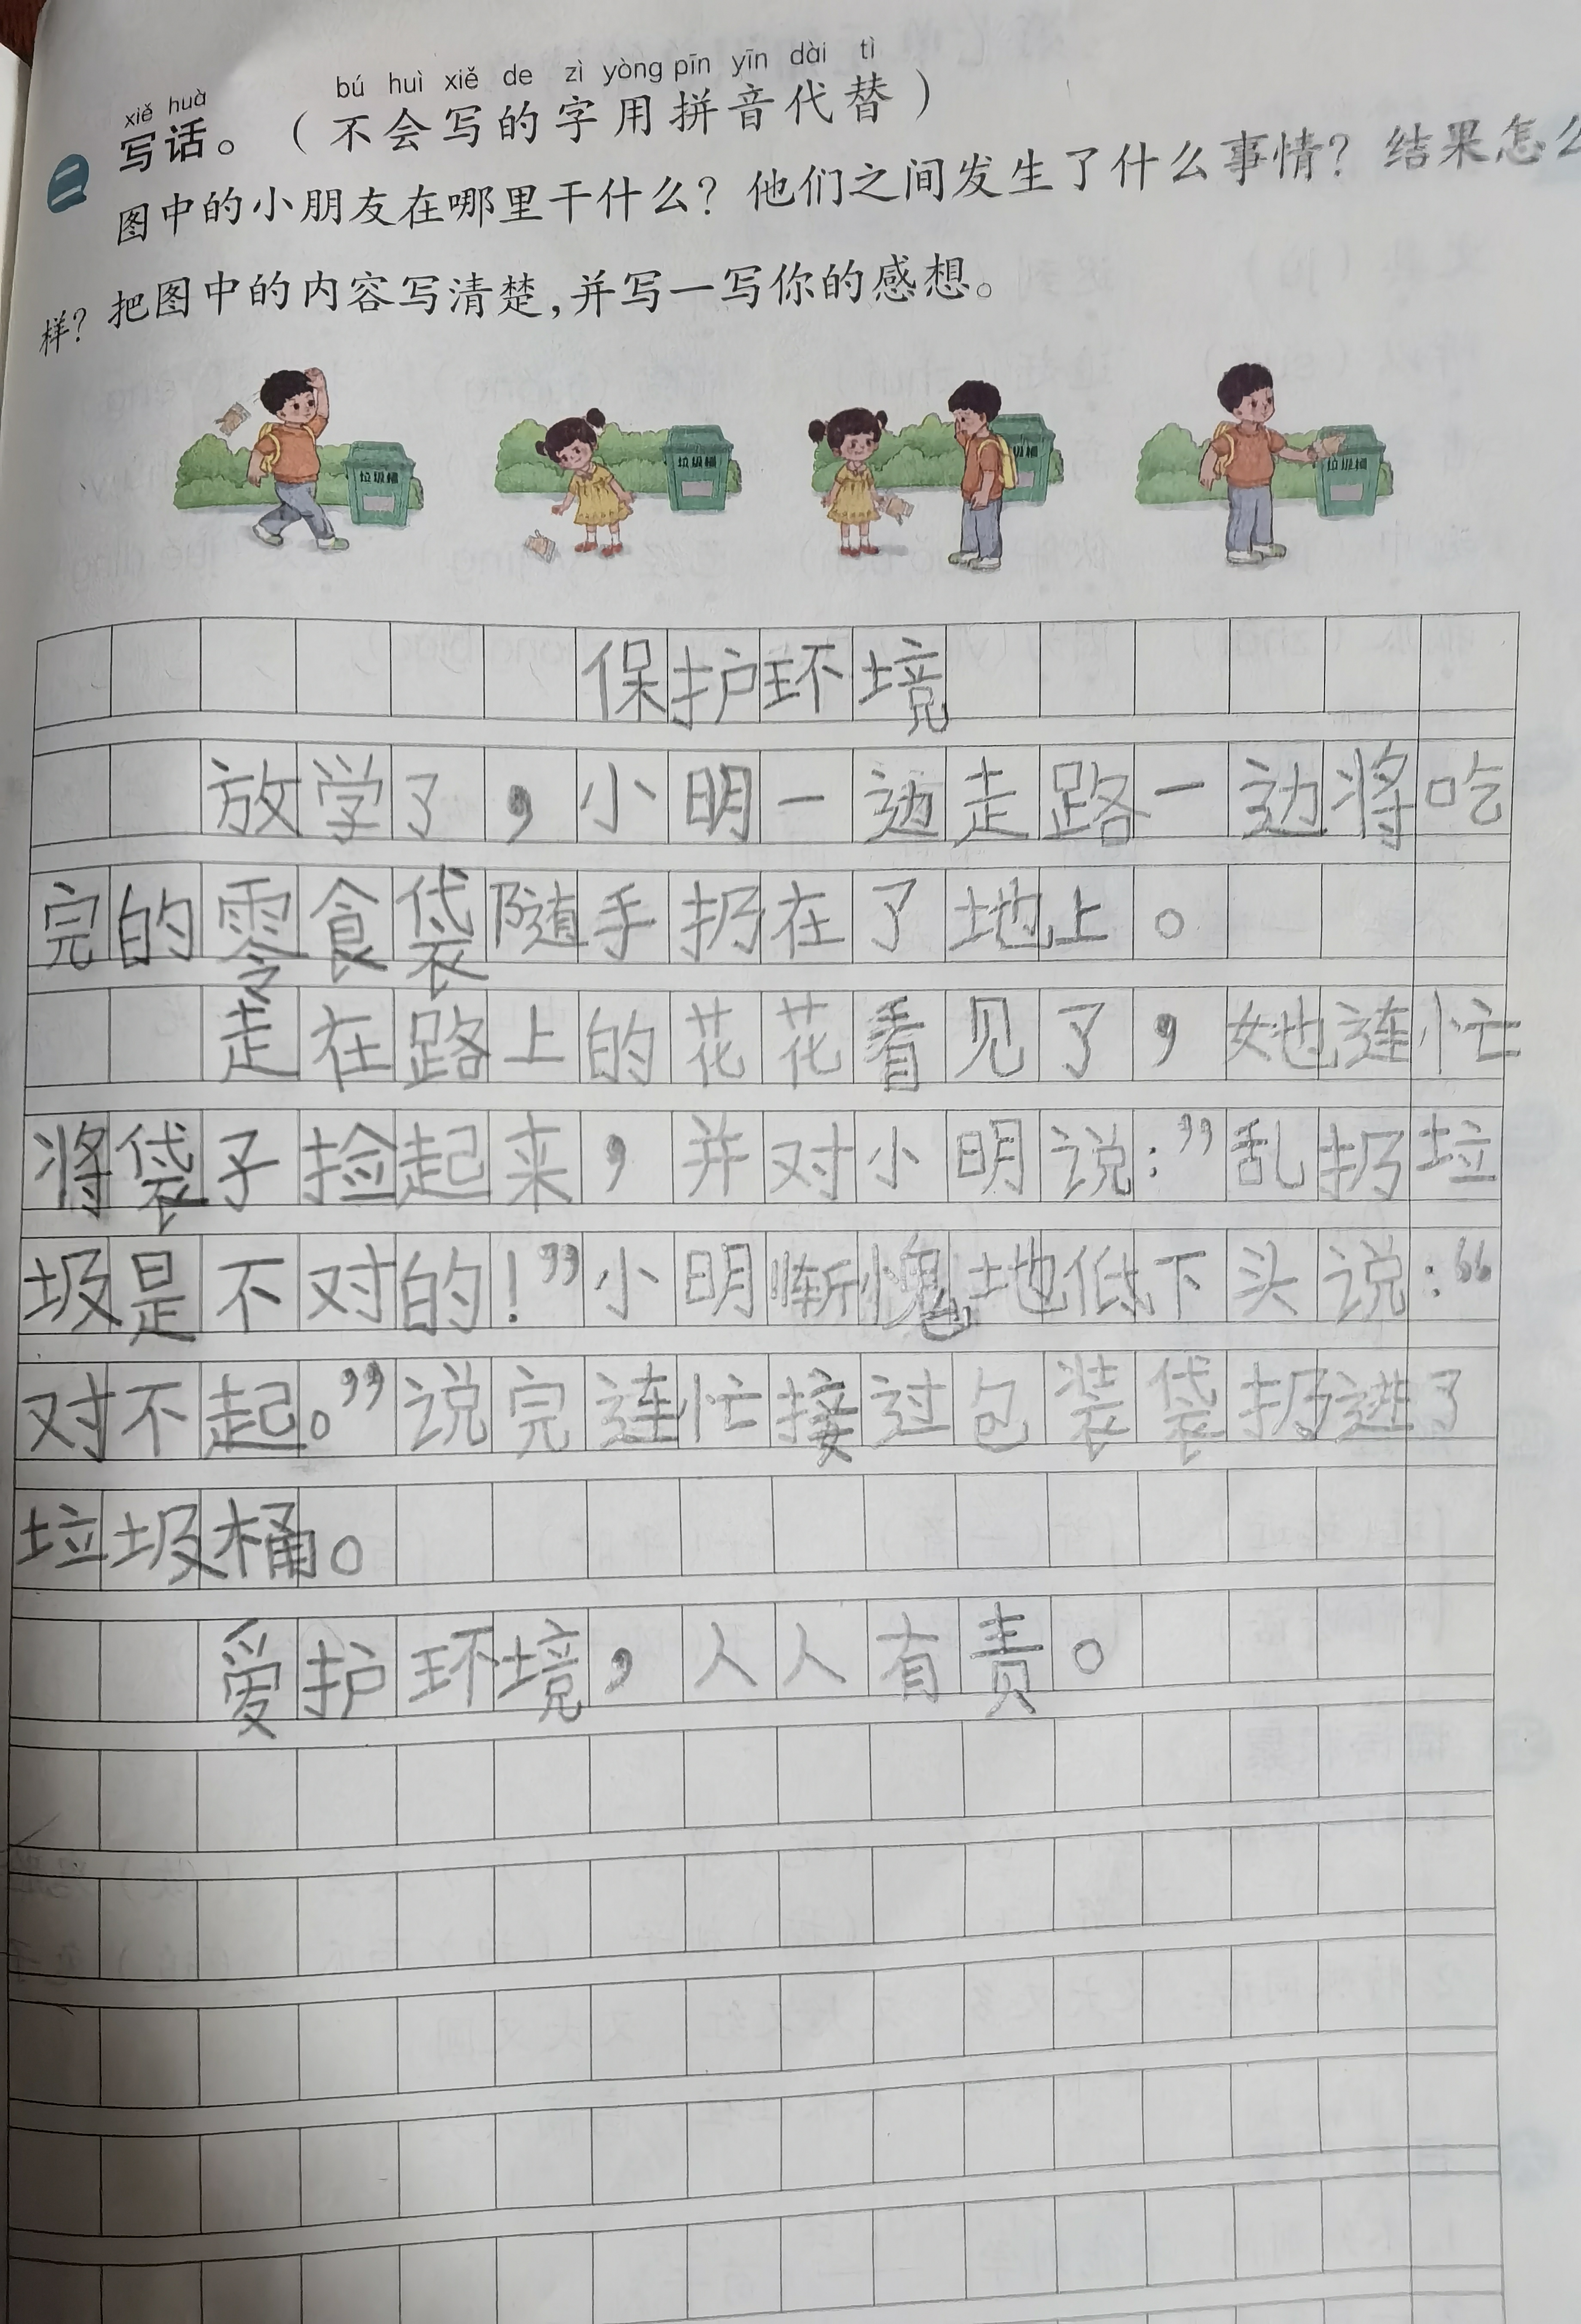 xiě huà bú huì xiě de zì yòng pīn yīn dài tì
二 写话。（不会写的字用拼音代替）
图中的小朋友在哪里干什么？他们之间发生了什么事情？结果怎么
样？把图中的内容写清楚，并写一写你的感想。
垃圾桶 垃圾桶 圾桶 垃圾桶
保护环境
放学了，小明一边走路一边将吃
完的零食袋随手扔在了地上。
走在路上的花花看见了，她连忙
将袋子捡起来，并对小明说：”乱扔垃
圾是不对的！”小明惭愧地低下头说：“
对不起。”说完连忙接过包装袋扔进了
垃圾桶。
爱护环境，人人有责。